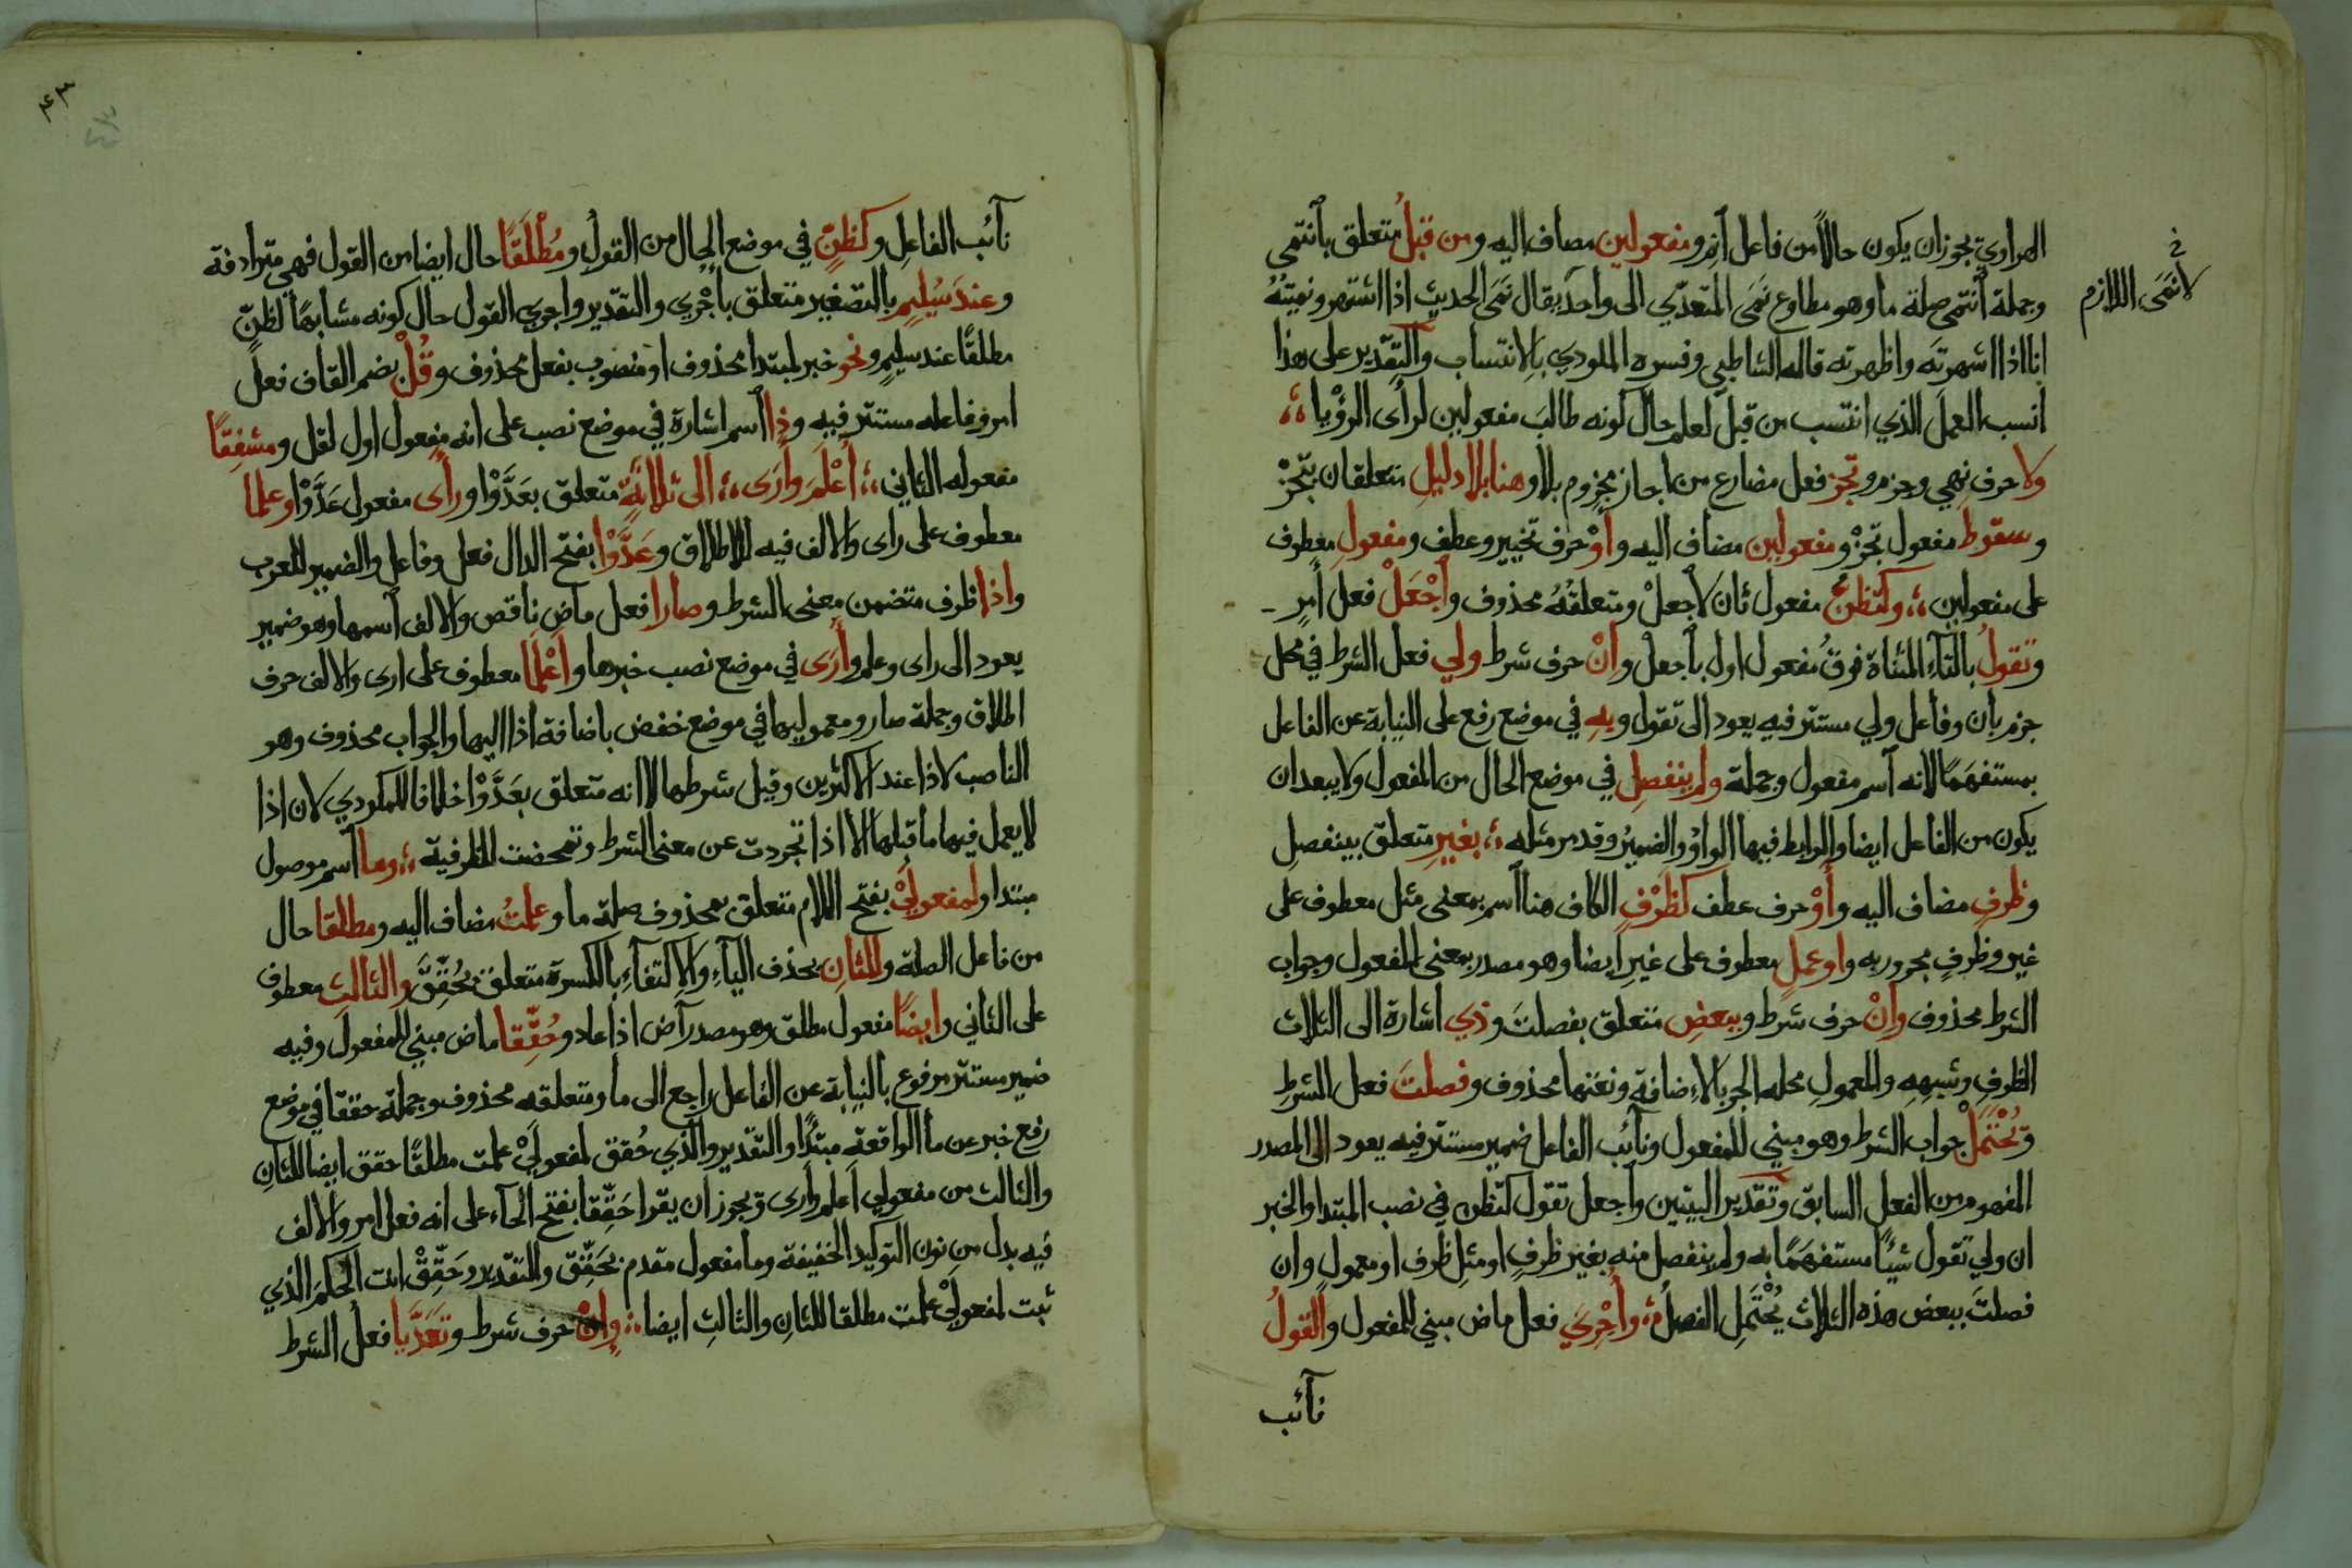 الهراوي يجوز ان يكون حالا من فاعل انم ومفعولين مضاف اليه ومن قبل متعلق بانتمى
وجملة انتمى صلة ما وهو مطاوع نمى المتعدي الى واحد يقال نمى الحديث اذا اشتهر ونميته
لا نمى اللازم
انا اذا اشهرته واظهرته قاله الشاطبي وفسره المكودي بالانتساب والتقدير على هذا
انسب العمل الذي انتسب من قبل لعلم حال كونه طالب مفعولين لرأى الرؤيا ؛
ولا حرف نهي وجزم وتجز فعل مضارع من اجاز مجزوم بلا وهنا بلا دليل متعلقان بتجز
وسقوط مفعول تجز ومفعولين مضاف اليه وأو حرف تخيير وعطف ومفعول معطوف
على مفعولين ؛ وكتظن مفعول ثان لاجعل ومتعلقه محذوف وأجعل فعل أمر
وتقول بالتاء المثناة فوق مفعول اول بأجعل وان حرف شرط ولي فعل الشرط في محل
جزم بان وفاعل ولي مستتر فيه يعود الى تقول وبه في موضع رفع على النيابة عن الفاعل
بمستفهما لانه اسم مفعول وجملة ولم ينفصل في موضع الحال من المفعول ولا يبعد ان
يكون من الفاعل ايضا والرابط فيها الواو والضمير وقد مر مثله ؛ بغير متعلق بينفصل
وظرف مضاف اليه وأو حرف عطف كظرف الكاف هنا اسم بمعنى مثل معطوف على
غير وظرف مجرور به واو عمل معطوف على غير ايضا وهو مصدر بمعنى المفعول وجواب
الشرط محذوف وان حرف شرط وببعض متعلق بفصلت وذي اشارة الى الثلاث
الظرف وشبهه والمعمول محله الجر بالاضافة ونعتها محذوف وفصلت فعل الشرط
ويحتمل جواب الشرط وهو مبني للمفعول ونائب الفاعل ضمير مستتر فيه يعود الى المصدر
المفهوم من الفعل السابق وتقدير البيتين وأجعل تقول كتظن في نصب المبتدا والخبر
ان ولي تقول شيئا مستفهما به ولم ينفصل منه بغير ظرف او مثل ظرف او معمول وان
فصلت ببعض هذه الثلاث يحتمل الفصل ؛ وأجري فعل ماض مبني للمفعول والقول
نائب
٤٣
نائب الفاعل وكظن في موضع الحال من القول ومطلقا حال ايضا من القول فهي مترادفة
وعند سليم بالتصغير متعلق بأجري والتقدير واجري القول حال كونه مشابها لظن
مطلقا عند سليم ونحو خبر لمبتدا محذوف او منصوب بفعل محذوف وقل بضم القاف فعل
امر وفاعله مستتر فيه وذا اسم اشارة في موضع نصب على انه مفعول اول لقل ومشفقا
مفعوله الثاني ؛ أعلم وأرى ؛ الى ثلاثة متعلق بعدوا ورأى مفعول عدوا وعلما
معطوف على راى والالف فيه للاطلاق وعدوا بفتح الدال فعل وفاعل والضمير للعرب
واذا ظرف متضمن معنى الشرط وصارا فعل ماض ناقص والالف اسمها وهو ضمير
يعود الى راى وعلم وأرى في موضع نصب خبرها وأعلما معطوف على ارى والالف حرف
اطلاق وجملة صار ومعموليها في موضع خفض باضافة اذا اليها والجواب محذوف وهو
الناصب لاذا عند الاكثرين وقيل شرطها لا انه متعلق بعدوا خلافا للمكودي لان اذا
لا يعمل فيها ما قبلها الا اذا تجردت عن معنى الشرط وتمحضت للظرفية ؛ وما اسم موصول
مبتدا ولمفعولي بفتح اللام متعلق بمحذوف صلة ما وعلمت مضاف اليه ومطلقا حال
من فاعل الصلة وللثان بحذف الياء والاكتفاء بالكسرة متعلق بحقق والثالث معطوف
على الثاني وايضا مفعول مطلق وهو مصدر آض اذا عاد وحققا ماض مبني للمفعول وفيه
ضمير مستتر مرفوع بالنيابة عن الفاعل راجع الى ما ومتعلقه محذوف وجملة حققا في موضع
رفع خبر عن ما الواقعة مبتدا والتقدير والذي حقق لمفعولي علمت مطلقا حقق ايضا للثان
والثالث من مفعولي أعلم وارى ويجوز ان يقرا حققا بفتح الحاء على انه فعل امر والالف
فيه بدل من نون التوكيد الخفيفة وما مفعول مقدم بحقق والتقدير وحقق انت الحكم الذي
ثبت لمفعولي علمت مطلقا للثان والثالث ايضا ؛ وان حرف شرط وتعديا فعل الشرط